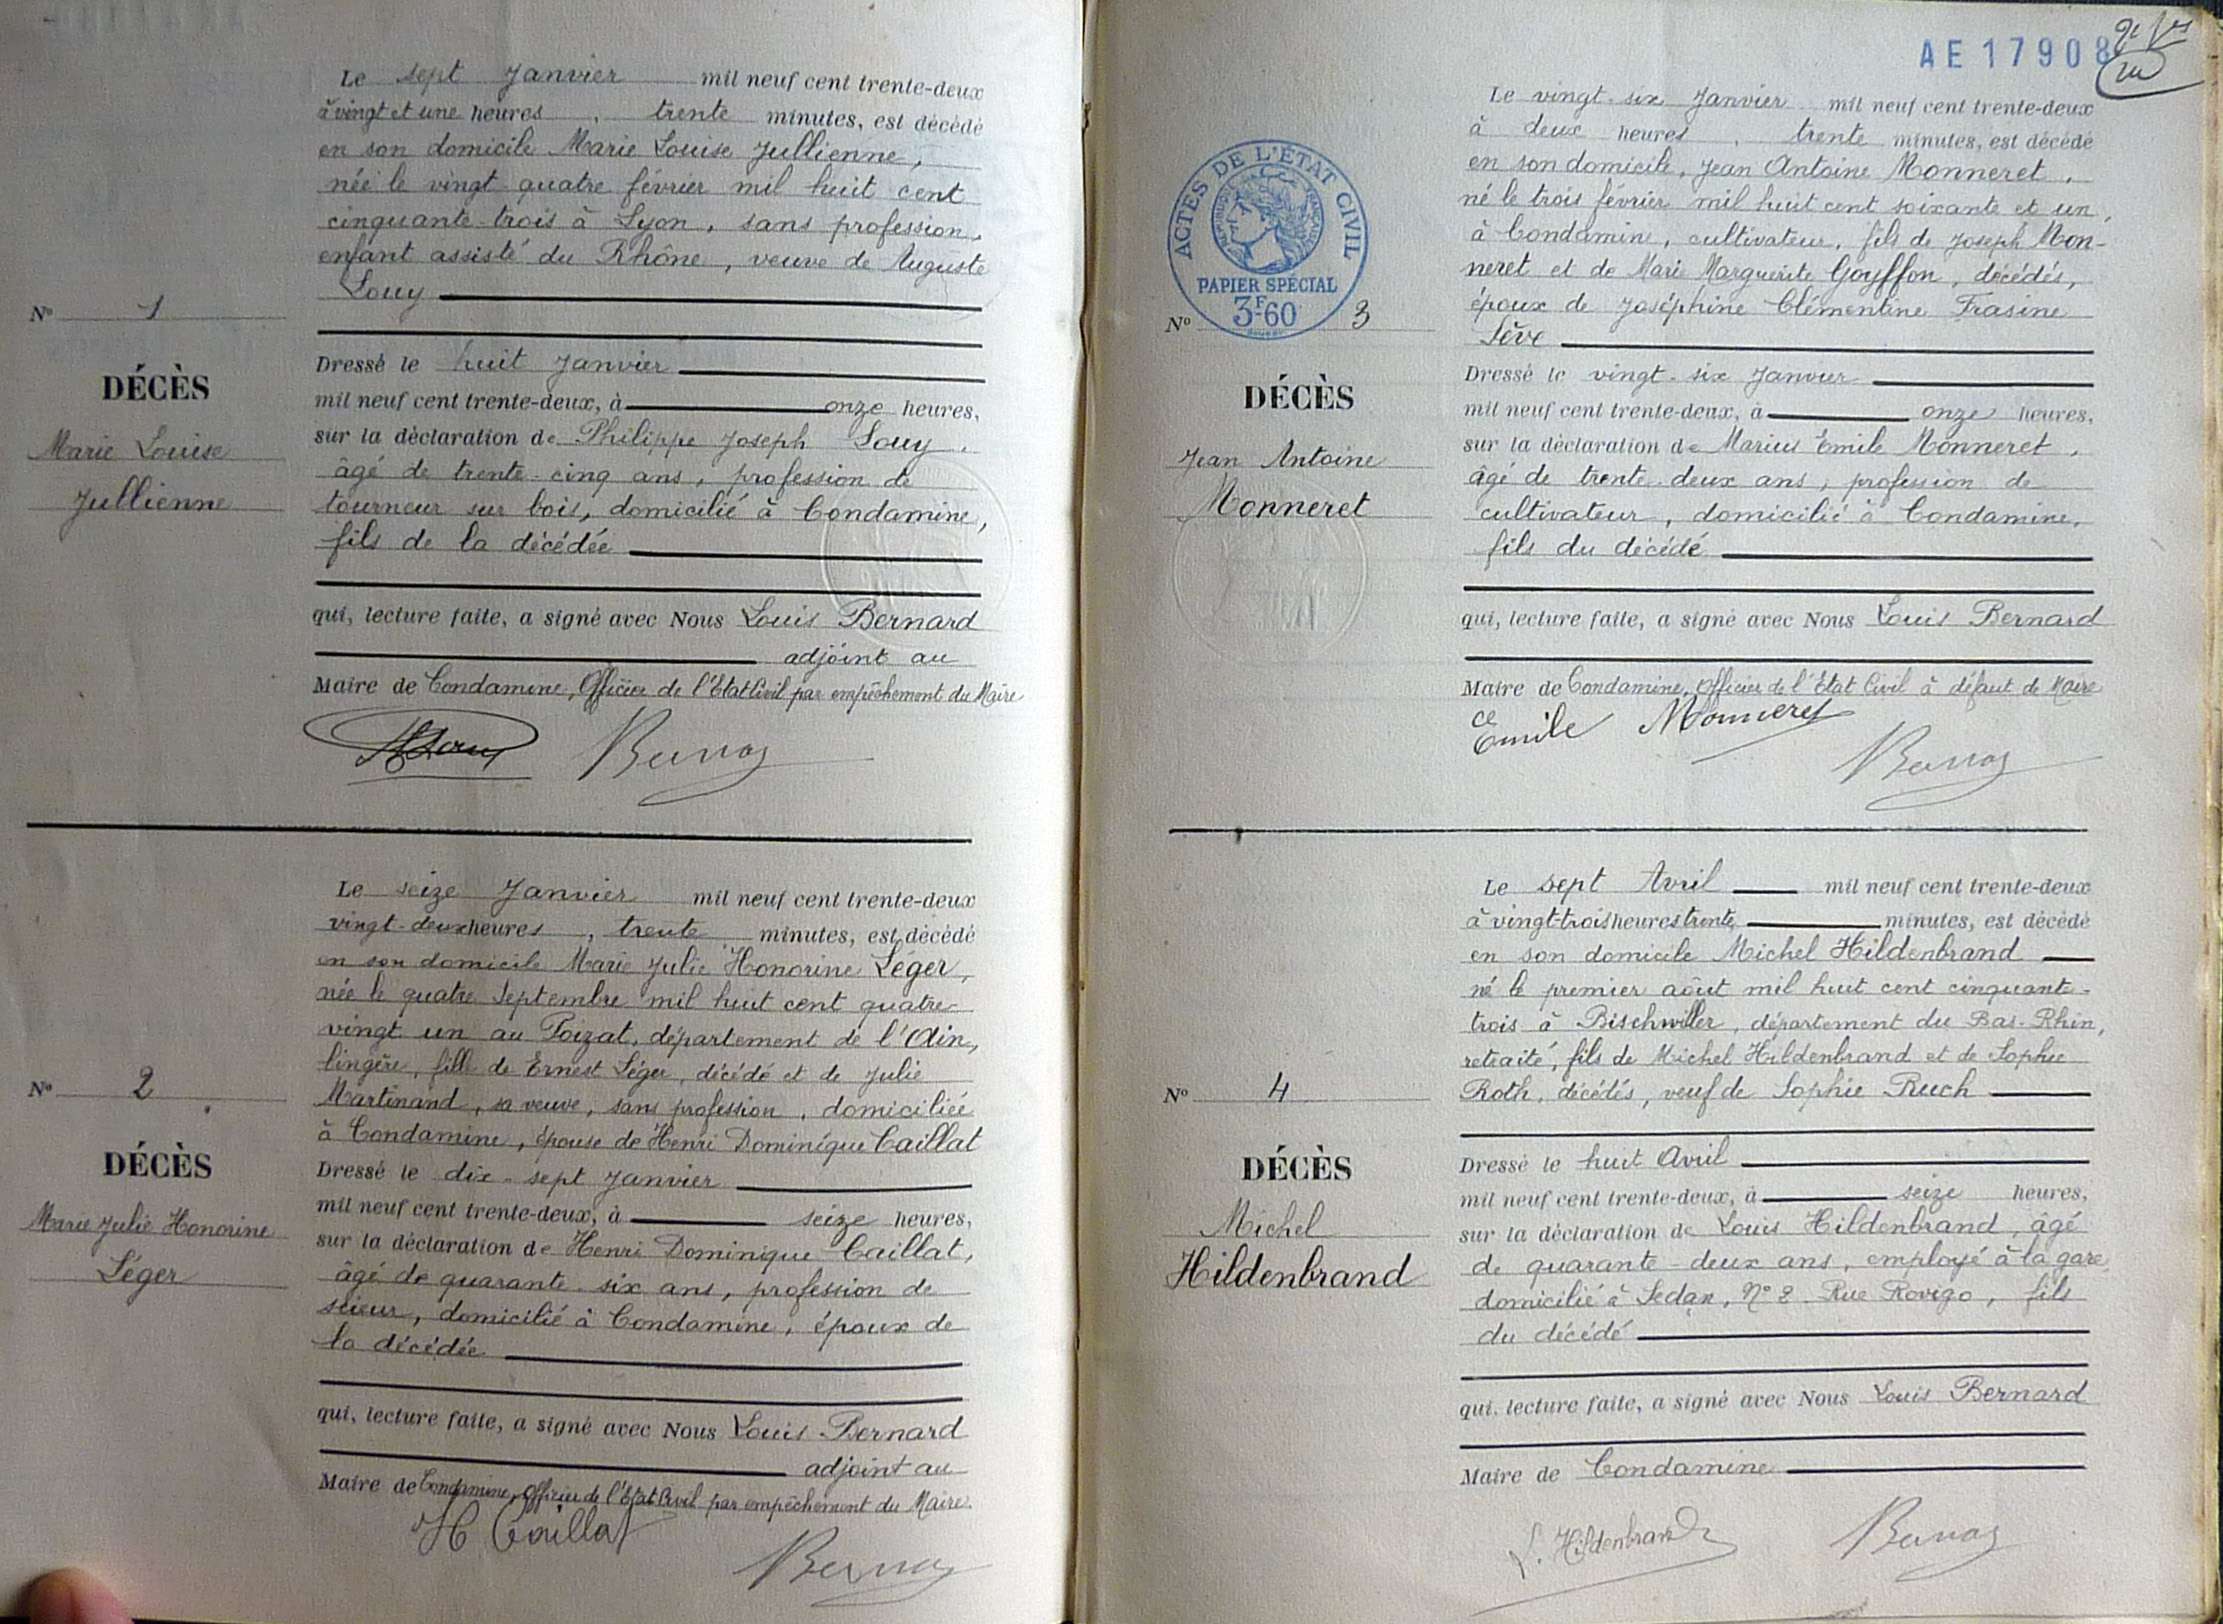 Le sept Janvier mil neuf cent trente-deux
à vingt et une heures, trente minutes, est décédé
en son domicile Marie Louise Jullienne,
née le vingt quatre février mil huit cent
cinquante-trois à Lyon, sans profession,
enfant assisté du Rhône, veuve de Auguste
Louy
N° 1
DÉCÈS
Marie Louise
Jullienne
Dressé le huit Janvier
mil neuf cent trente-deux, à onze heures,
sur la déclaration de Philippe Joseph Louy,
âgé de trente-cinq ans, profession de
tourneur sur bois, domicilié à Condamine,
fils de la décédée
qui, lecture faite, a signé avec Nous Louis Bernard
adjoint au
Maire de Condamine, Officier de l'Etat Civil par empêchement du Maire
Le seize Janvier mil neuf cent trente-deux
vingt-deux heures, trente minutes, est décédé
en son domicile Marie Julie Honorine Léger,
née le quatre Septembre mil huit cent quatre-
vingt un au Poizat, département de l'Ain,
lingère, fille de Ernest Léger, décédé et de Julie
Martinand, sa veuve, sans profession, domiciliée
à Condamine, épouse de Henri Dominique Caillat
N° 2
DÉCÈS
Marie Julie Honorine
Léger
Dressé le dix-sept Janvier
mil neuf cent trente-deux, à seize heures,
sur la déclaration de Henri Dominique Caillat,
âgé de quarante-six ans, profession de
scieur, domicilié à Condamine, époux de
la décédée
qui, lecture faite, a signé avec Nous Louis Bernard
adjoint au
Maire de Condamine, Officier de l'Etat Civil par empêchement du Maire.
H Caillat
AE 17908
ACTES DE L'ÉTAT CIVIL
RÉPUBLIQUE FRANÇAISE
PAPIER SPÉCIAL
3F60
Le vingt-six Janvier mil neuf cent trente-deux
à deux heures, trente minutes, est décédé
en son domicile, Jean Antoine Monneret,
né le trois février mil huit cent soixante et un,
à Condamine, cultivateur, fils de Joseph Mon-
neret et de Marie Marguerite Goyffon, décédés,
époux de Joséphine Clémentine Frasine
Sève
N° 3
DÉCÈS
Jean Antoine
Monneret
Dressé le vingt-six Janvier
mil neuf cent trente-deux, à onze heures,
sur la déclaration de Marius Emile Monneret,
âgé de trente-deux ans, profession de
cultivateur, domicilié à Condamine,
fils du décédé
qui, lecture faite, a signé avec Nous Louis Bernard
Maire de Condamine, Officier de l'Etat Civil à défaut de Maire
Emile Monneret
Le sept Avril mil neuf cent trente-deux
à vingt-trois heures trente minutes, est décédé
en son domicile Michel Hildenbrand
né le premier août mil huit cent cinquante-
trois à Bischwiller, département du Bas-Rhin,
retraité, fils de Michel Hildenbrand et de Sophie
Roth, décédés, veuf de Sophie Ruch
N° 4
DÉCÈS
Michel
Hildenbrand
Dressé le huit Avril
mil neuf cent trente-deux, à seize heures,
sur la déclaration de Louis Hildenbrand, âgé
de quarante-deux ans, employé à la gare
domicilié à Sedan, N° 2 Rue Rovigo, fils
du décédé
qui, lecture faite, a signé avec Nous Louis Bernard
Maire de Condamine
L. Hildenbrand